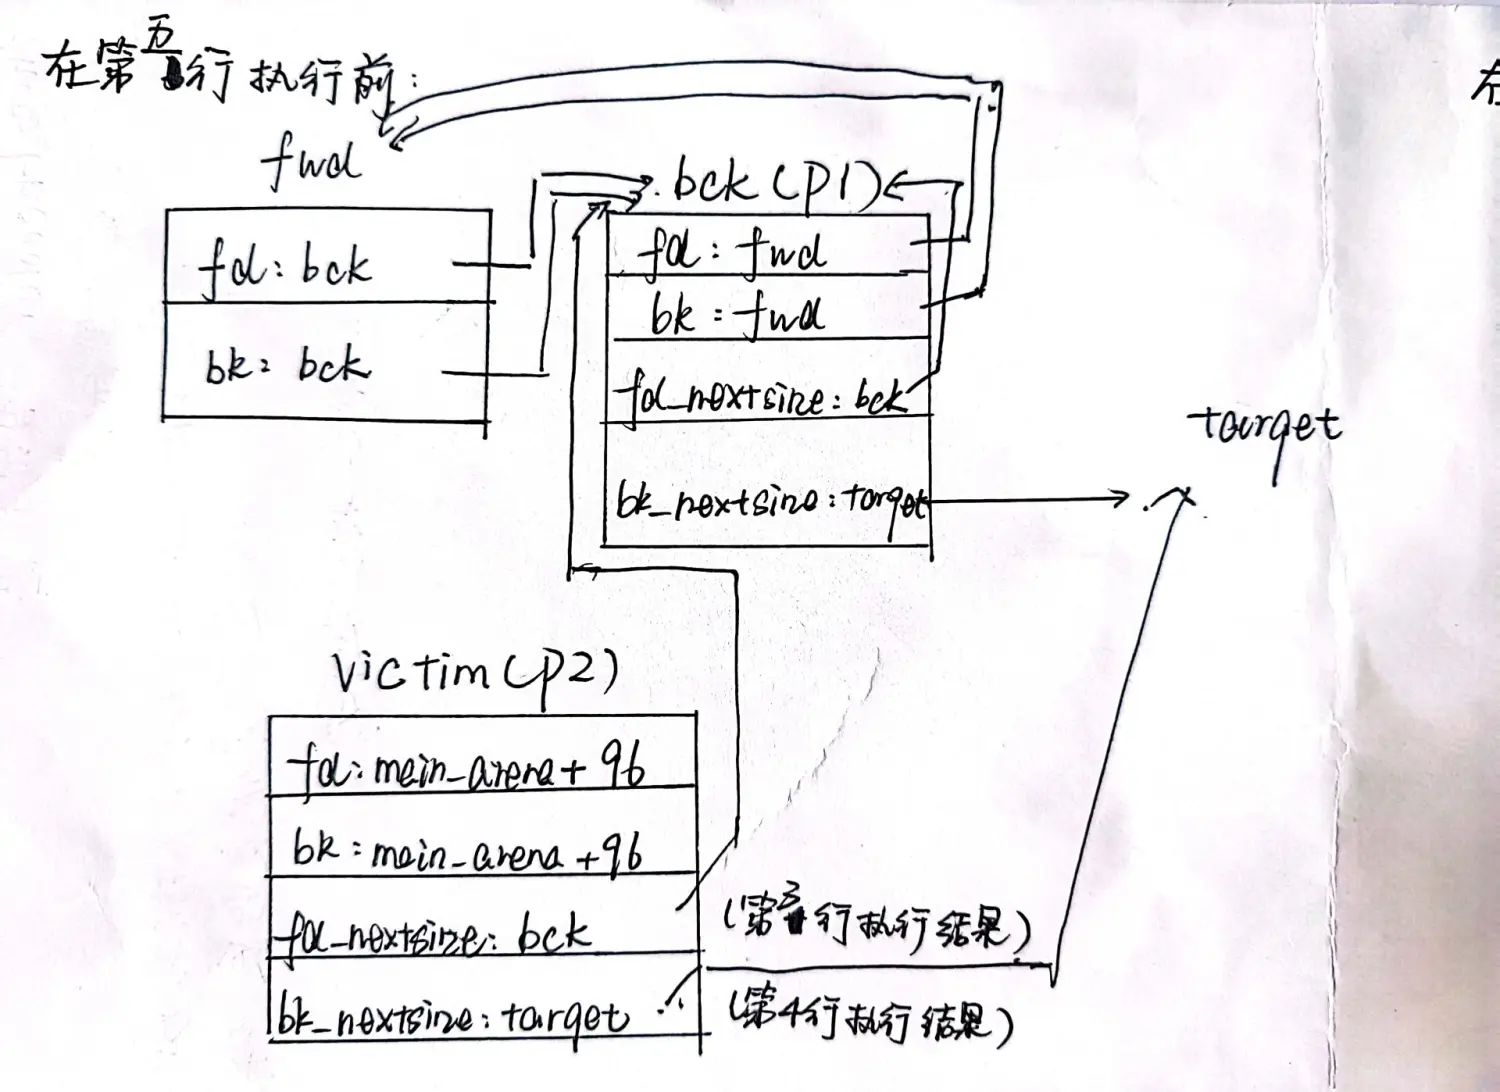 在第五行执行前:
fwd
fd: bck
bk: bck
bck(p1)
fd: fwd
bk: fwd
fd_nextsize: bck
bk_nextsize: target
target
victim(p2)
fd: main_arena+96
bk: main_arena+96
fd_nextsize: bck
(第3行执行结果)
bk_nextsize: target
(第4行执行结果)